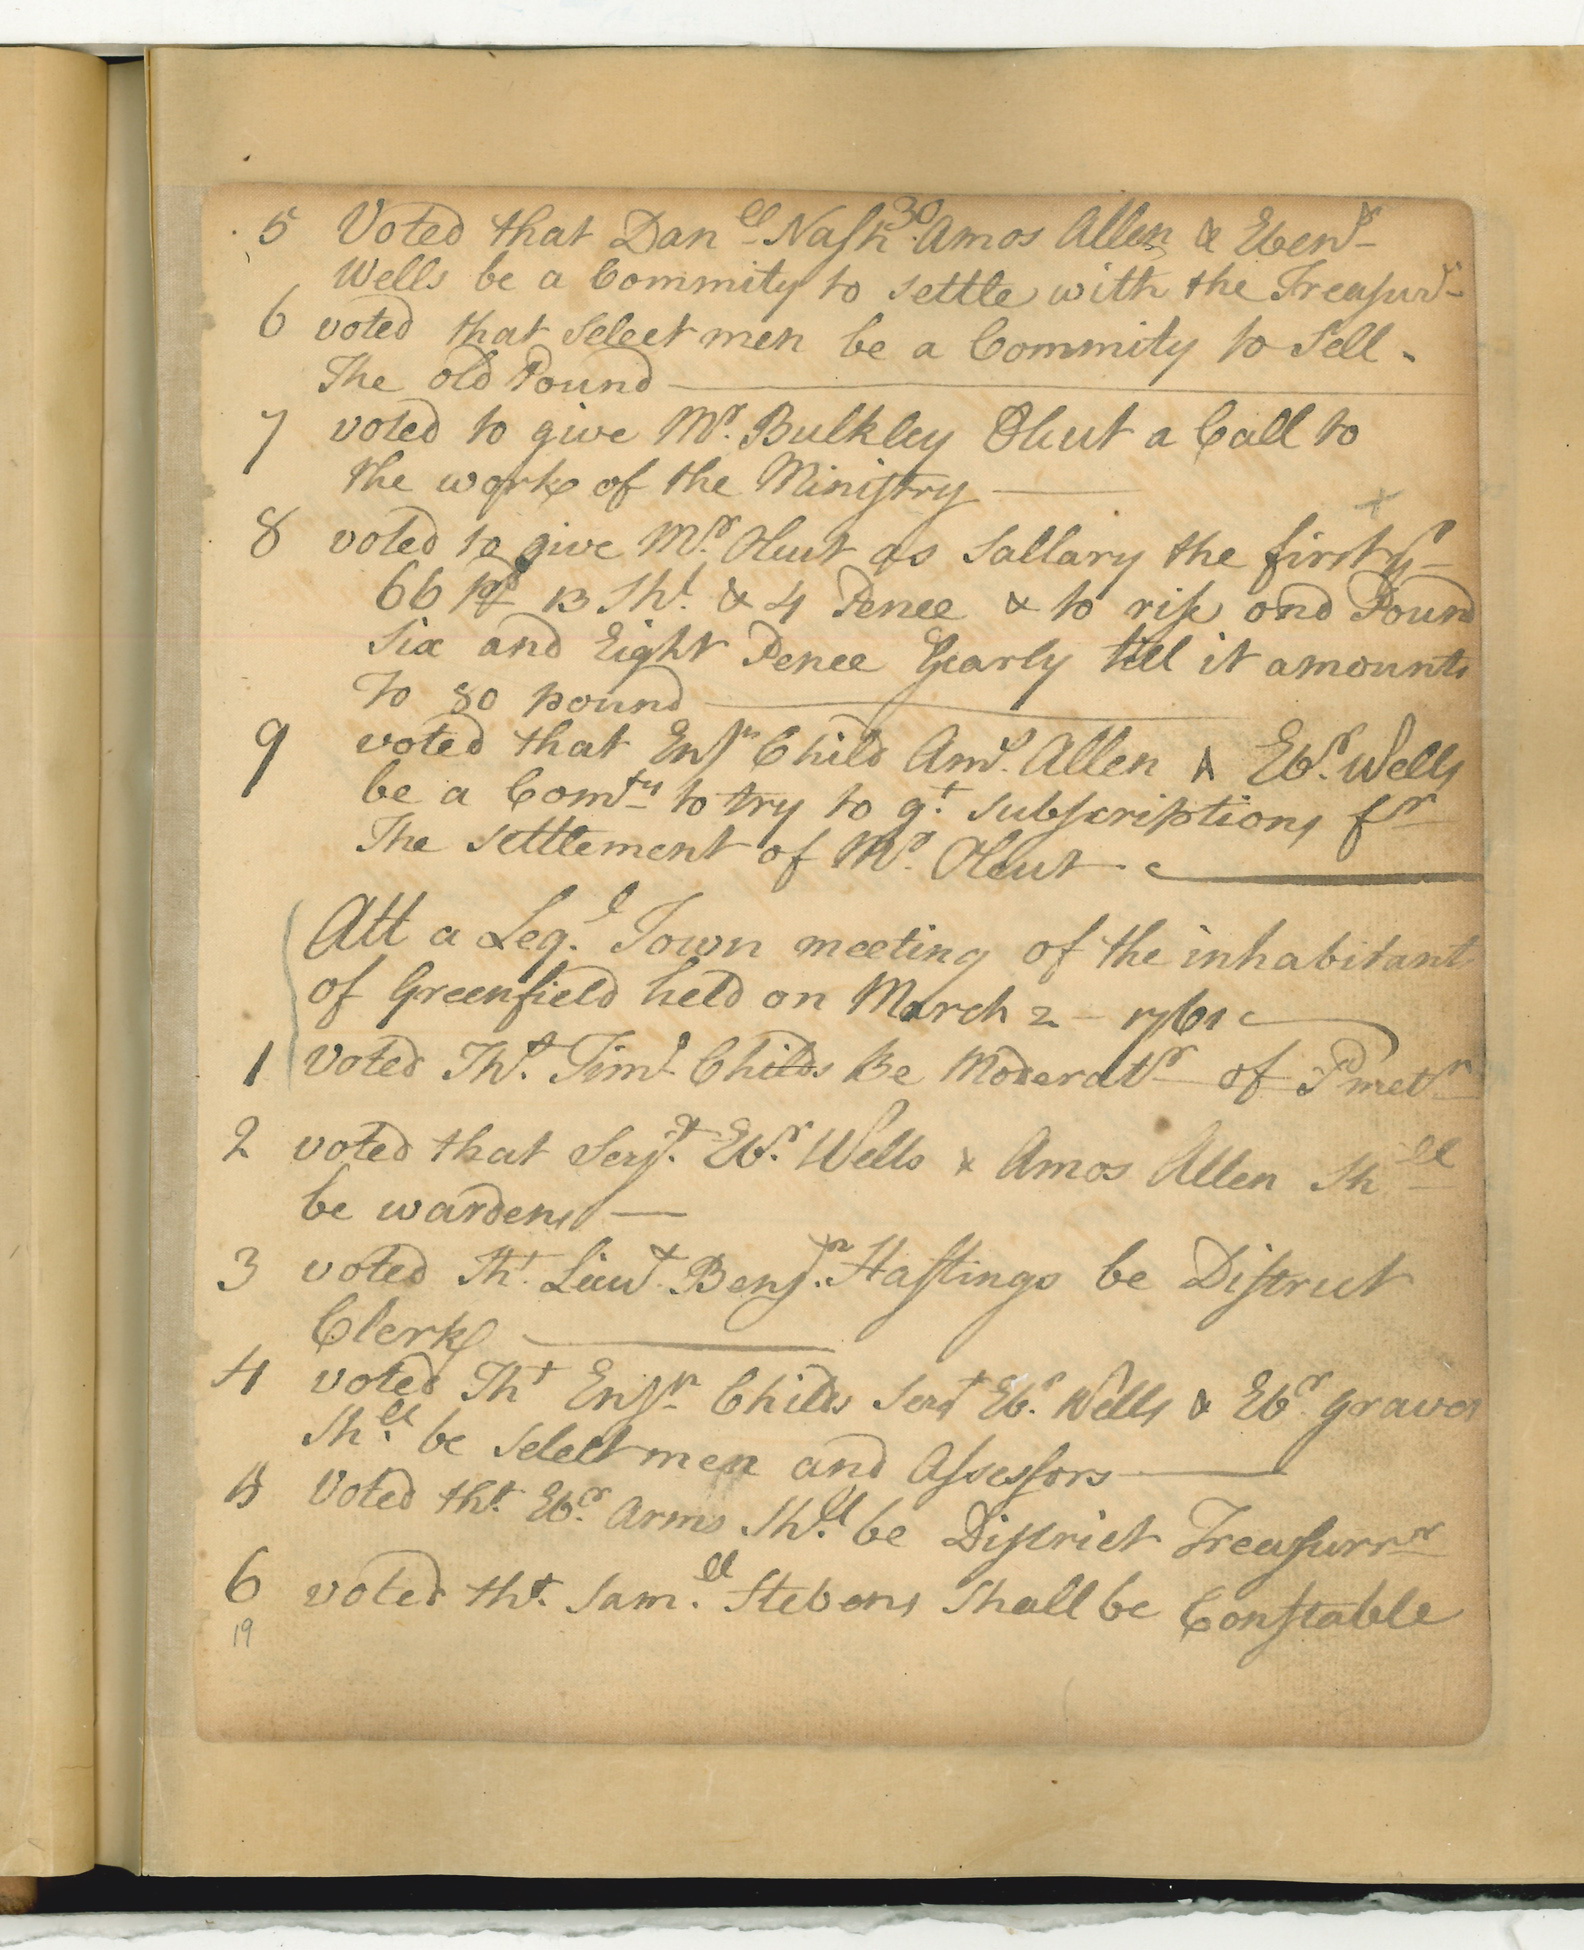 30
5 Voted that Dan^ll Nash Amos Allen & Eben^r
Wells be a Commity to settle with the Treasur^r
6 voted that Select men be a Commity to Sell
The old Pound
7 voted to give M^r. Bulkley Olcut a Call to
the work of the Ministry
8 voted to give M^r. Olcut as Sallary the first y^r
66 13 Sh^l. & 4 Pence & to rise one Pound
Six and Eight Pence Yearly till it amounts
To 80 pound
9 voted that Ens^n Child Am^s. Allen & Eb^r. Wells
be a Com^ty to try to g^t. subscriptions f^r
The settlement of M^r. Olcut
Att a Leg^l. Town meeting of the inhabitants
of Greenfield held on March 2 - 1761
1 voted Th^t. Tim^o Childs Be Moderat^r of S^d met^n
2 voted that Serj^t. Eb^r. Wells & Amos Allen Sh^ll
be wardens
3 voted th^t. Lieu^t. Benj^n. Hastings be District
Clerk
4 voted Th^t Ens^n Childs Serj^t Eb^r. Wells & Eb^r. Graves
Sh^ll be Select men and Assessors
5 Voted th^t. Eb^r. Arms Sh^ll be District Treasurr^r
6 voted th^t. Sam^ll. Stebens Shall be Constable
19